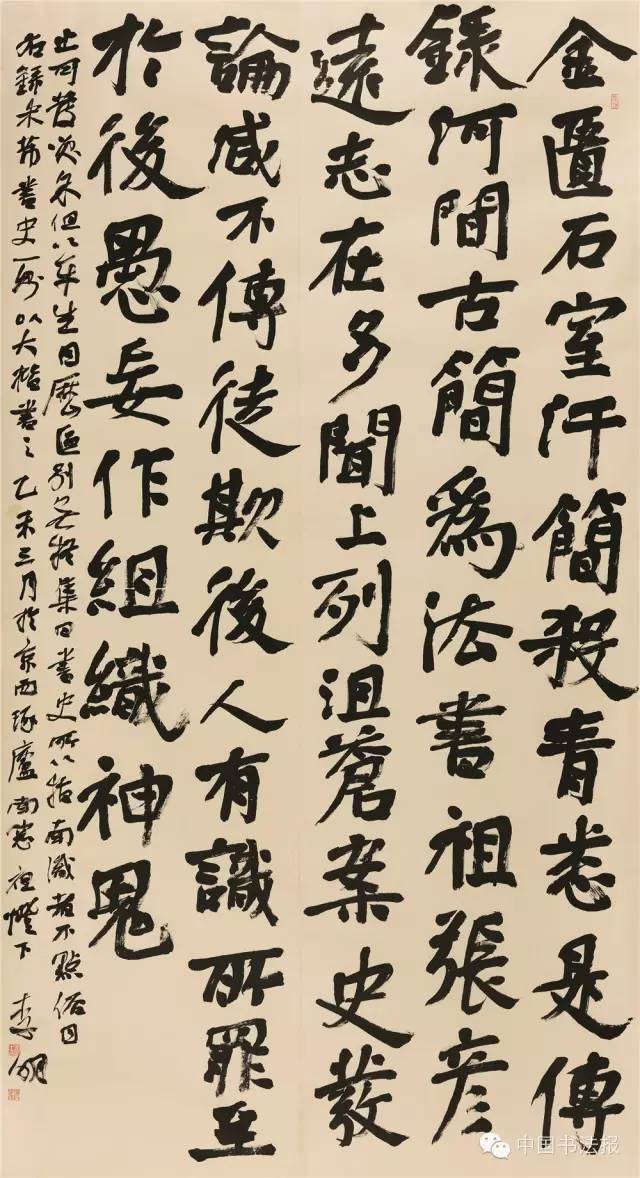 金匱石室汗簡殺青悉是傳
錄河間古簡爲法書祖張彦
遠志在多聞上列沮蒼案史發
論咸不傳徒欺後人有識所罪至
於後愚妄作組織神鬼
止可發笑余但以平生目歷區別無疑集曰書史所以指南識者不點俗目
右錄米芾書史一則以大楷書之乙未三月於京西琢廬南窓燈下李明
中国书法报